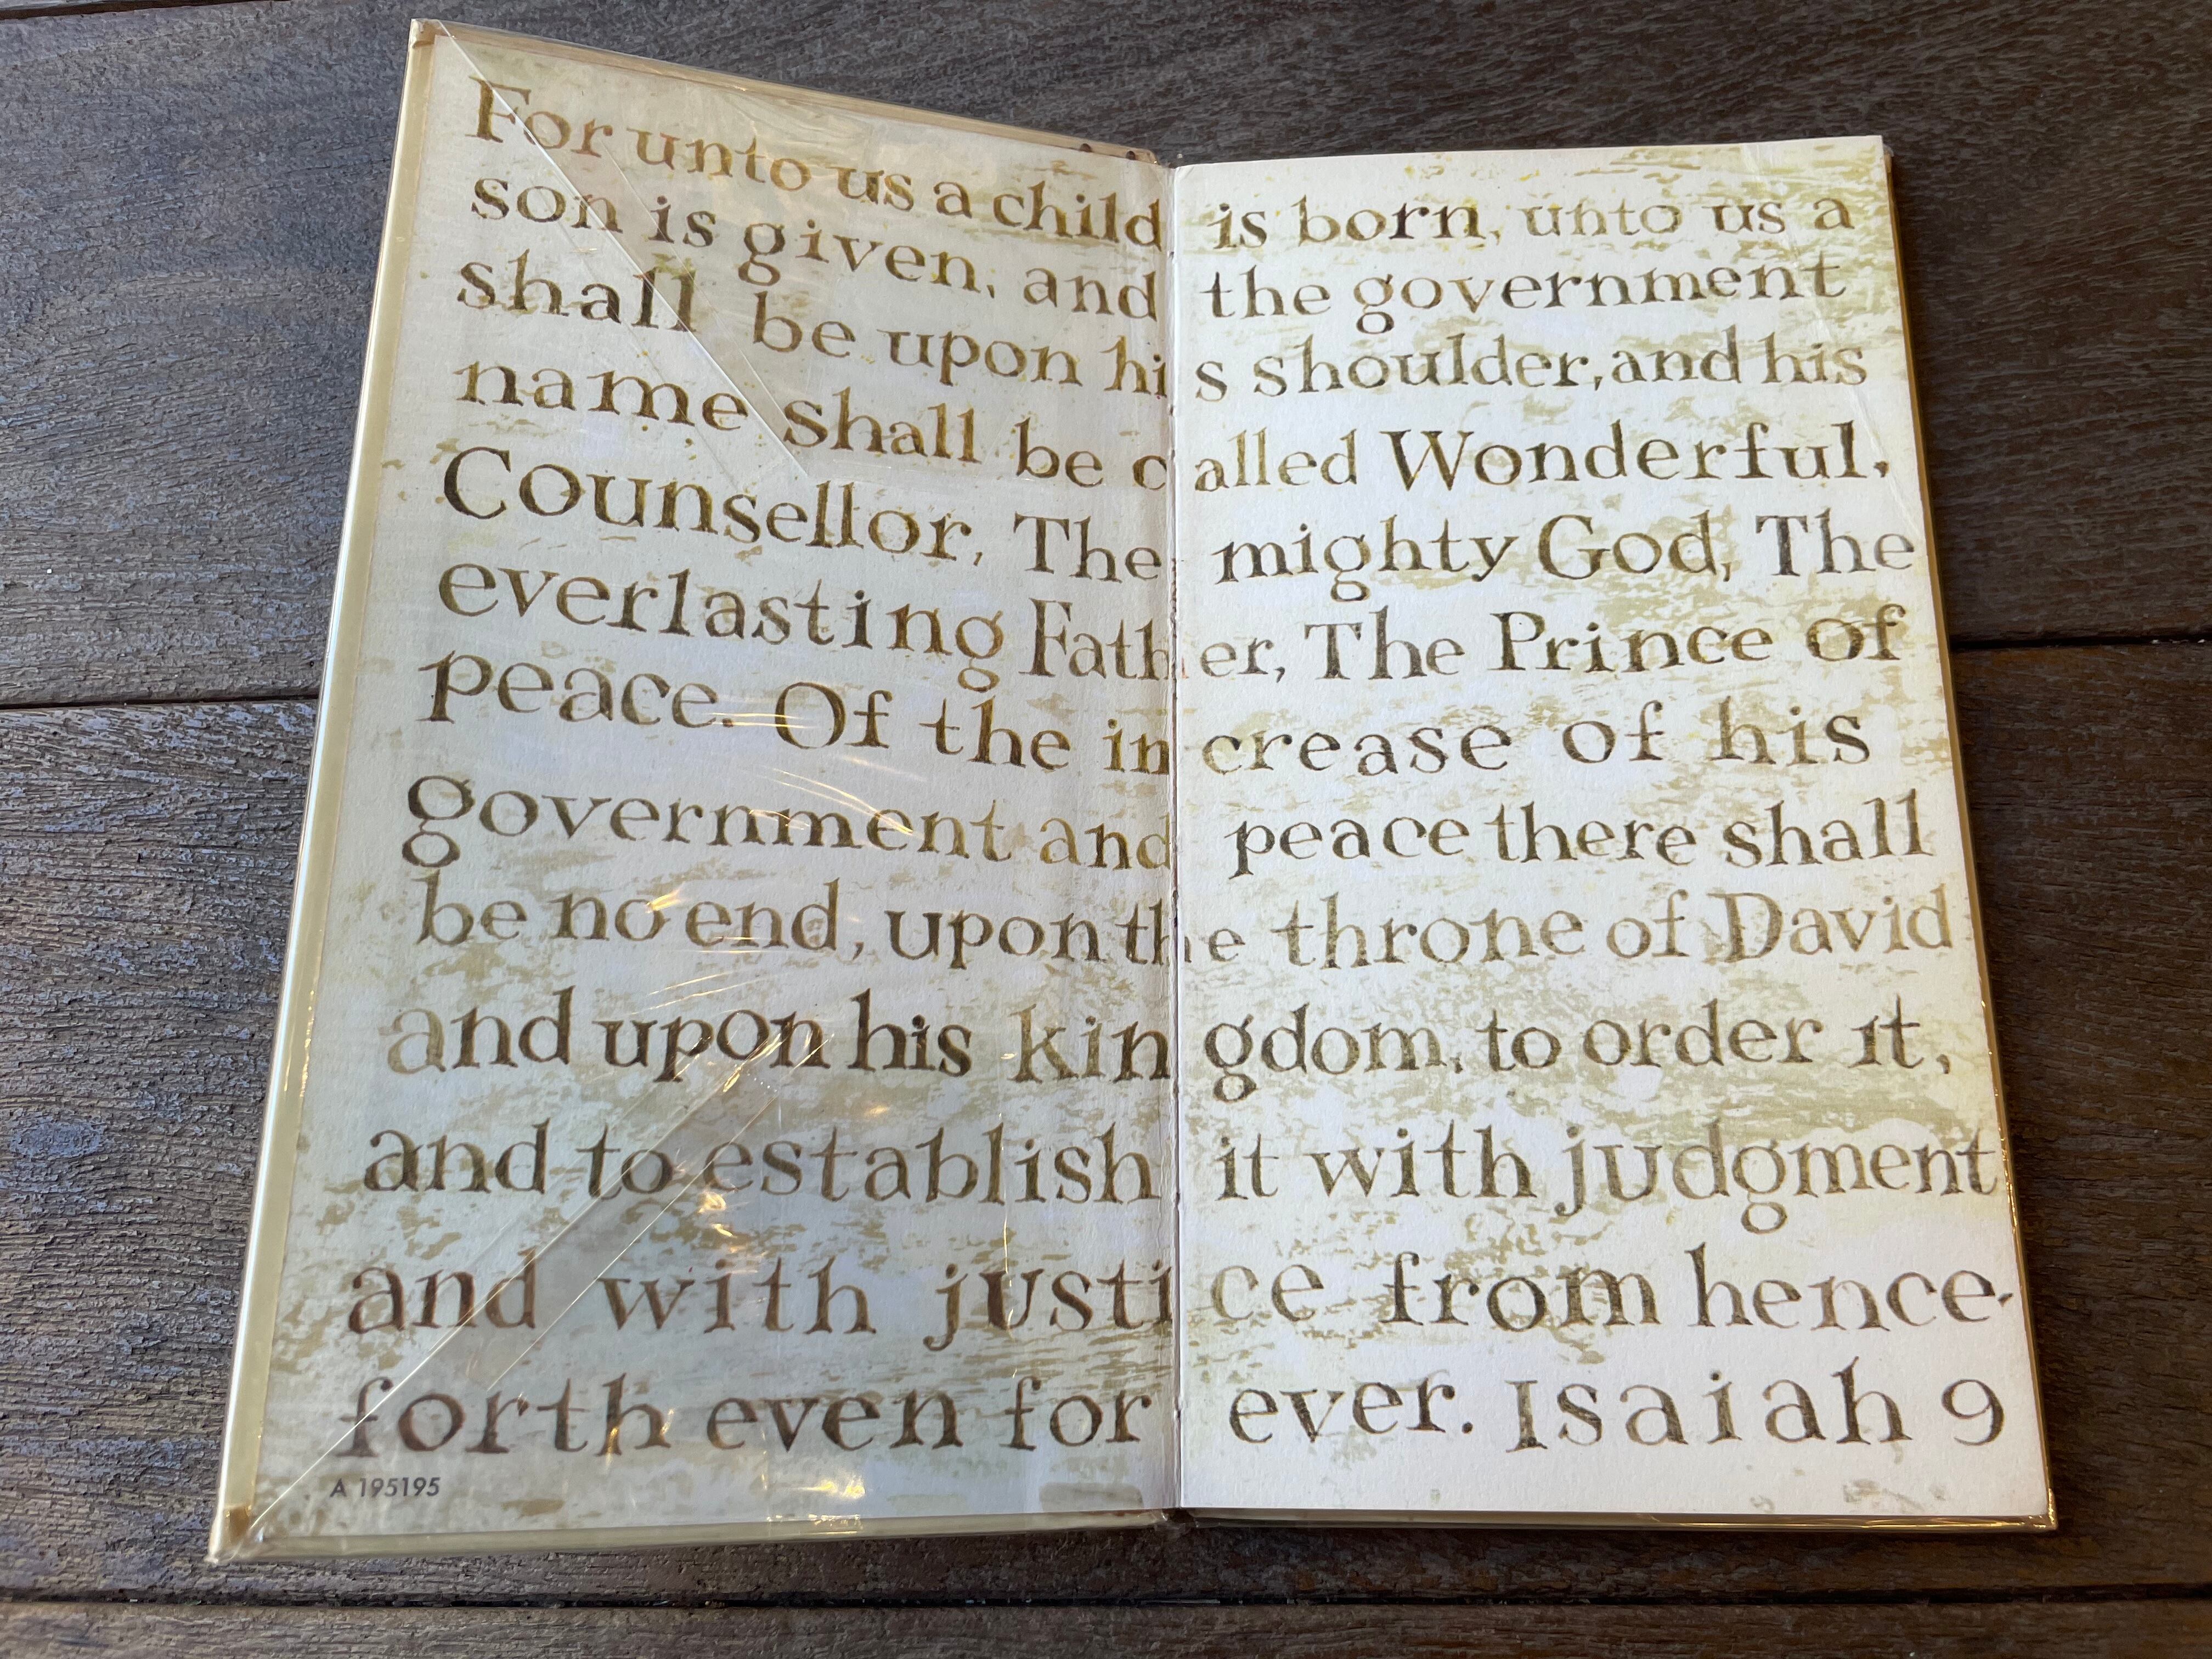 For unto us a child is born, unto us a
son is given, and the government
shall be upon his shoulder, and his
name shall be called Wonderful,
Counsellor, The mighty God, The
everlasting Father, The Prince of
peace. Of the increase of his
government and peace there shall
be no end, upon the throne of David
and upon his kingdom, to order it,
and to establish it with judgment
and with justice from hence-
forth even for ever. Isaiah 9
A 195195